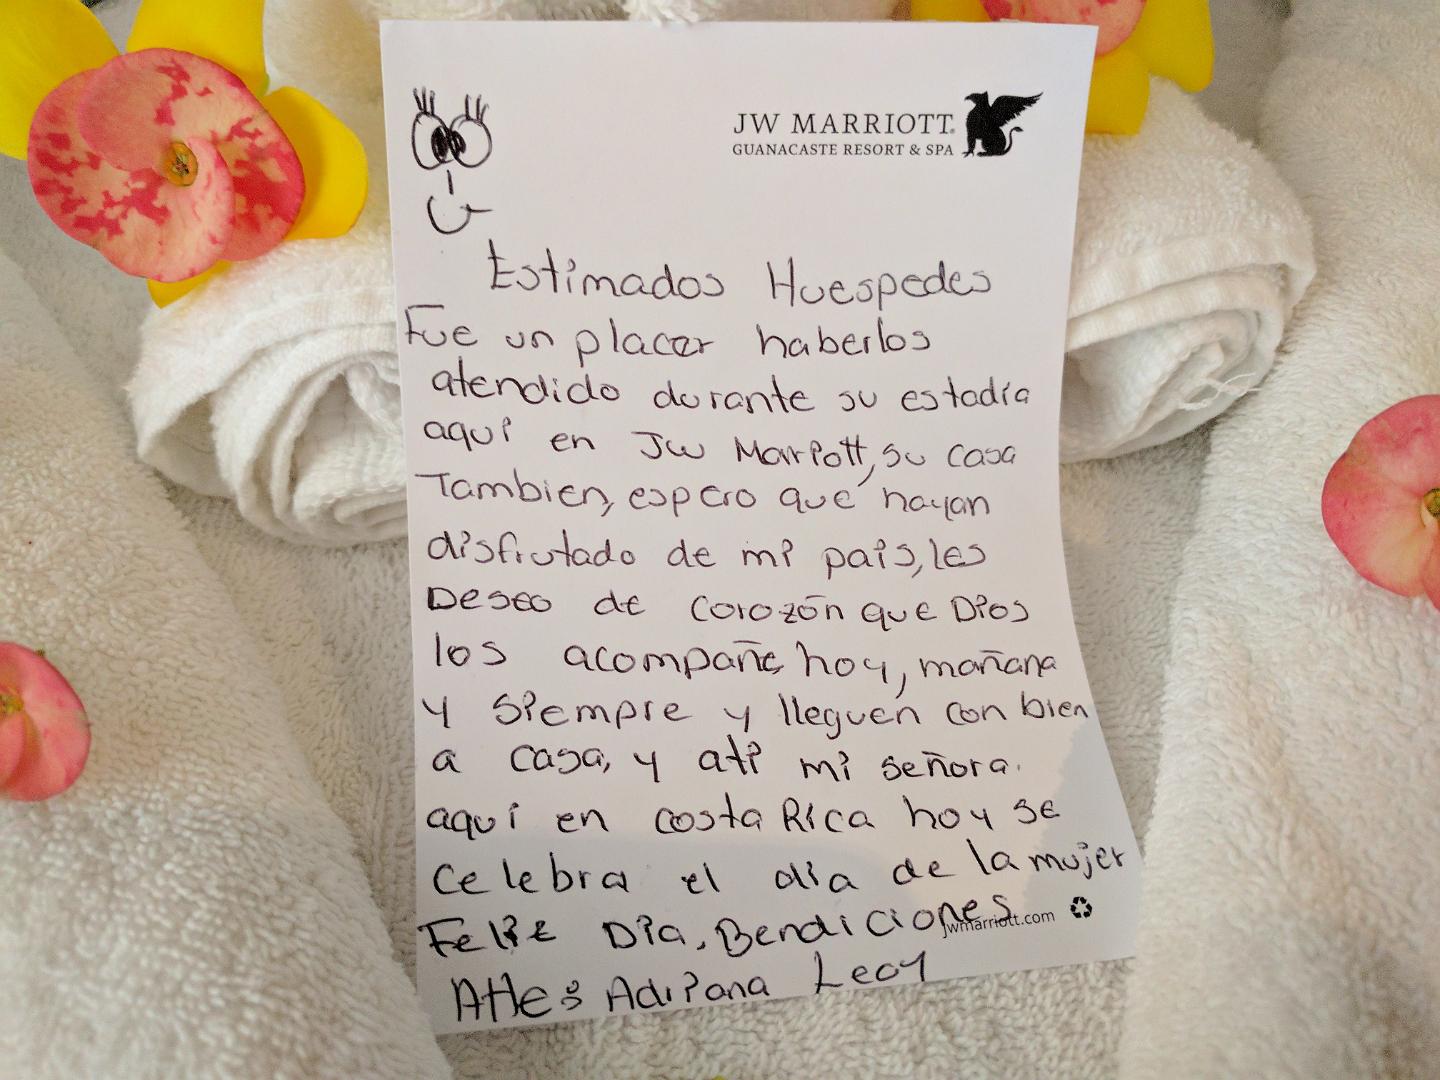 JW MARRIOTT®
GUANACASTE RESORT & SPA
Estimados Huespedes
Fue un placer haberlos
atendido durante su estadía
aquí en JW Marriott, su casa
Tambien, espero que hayan
disfrutado de mi pais, les
Deseo de corozōn que Dios
los acompañe, hoy, mañana
y siempre y lleguen con bien
a casa, y ati mi señora.
aquí en costa Rica hoy se
celebra el día de la mujer
Feliz Día, Bendiciones
jwmarriott.com
Atte: Adriana Leoy